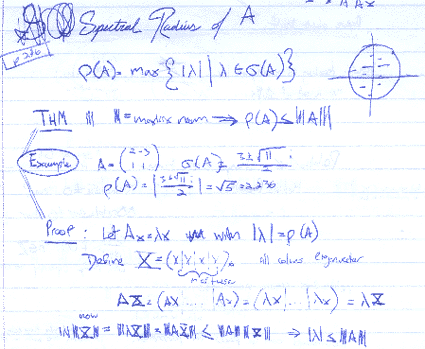 Spectral Radius of A
p 236
ρ(A) = max { |λ| | λ ∈ σ(A) }
THM ||| ||| = matrix norm ⟹ ρ(A) ≤ |||A|||
Example A = (2 -3; 1 1) σ(A) = (3 ± √11 i)/2
ρ(A) = |(3 ± √11 i)/2| = √5 = 2.236
Proof: Let Ax = λx with |λ| = ρ(A)
Define X = (x|x|x|x), all colums eigenvector
matrix
AX = (Ax ... |Ax) = (λx| ... |λx) = λX
now
|λ| |||X||| = |||λX||| = |||AX||| ≤ |||A||| |||X||| ⟹ |λ| ≤ |||A|||